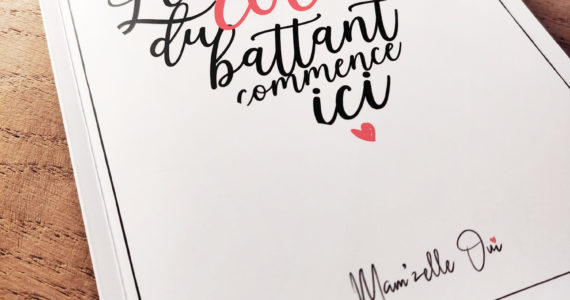 Le
du
battant
commence
ici
Mam'zelle Oui